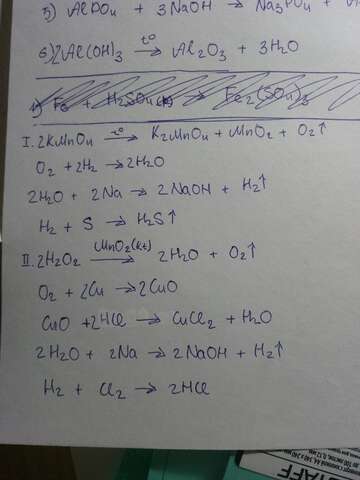 5) AlPO₄ + 3NaOH → Na₃PO₄ +
6) 2Al(OH)₃ t° → Al₂O₃ + 3H₂O
Fe + H₂SO₄(к) → Fe₂(SO₄)₃
I. 2KMnO₄ t° → K₂MnO₄ + MnO₂ + O₂↑
O₂ + 2H₂ → 2H₂O
2H₂O + 2Na → 2NaOH + H₂↑
H₂ + S → H₂S↑
II. 2H₂O₂ MnO₂(kt) → 2H₂O + O₂↑
O₂ + 2Cu → 2CuO
CuO + 2HCl → CuCl₂ + H₂O
2H₂O + 2Na → 2NaOH + H₂↑
H₂ + Cl₂ → 2HCl
STAFF